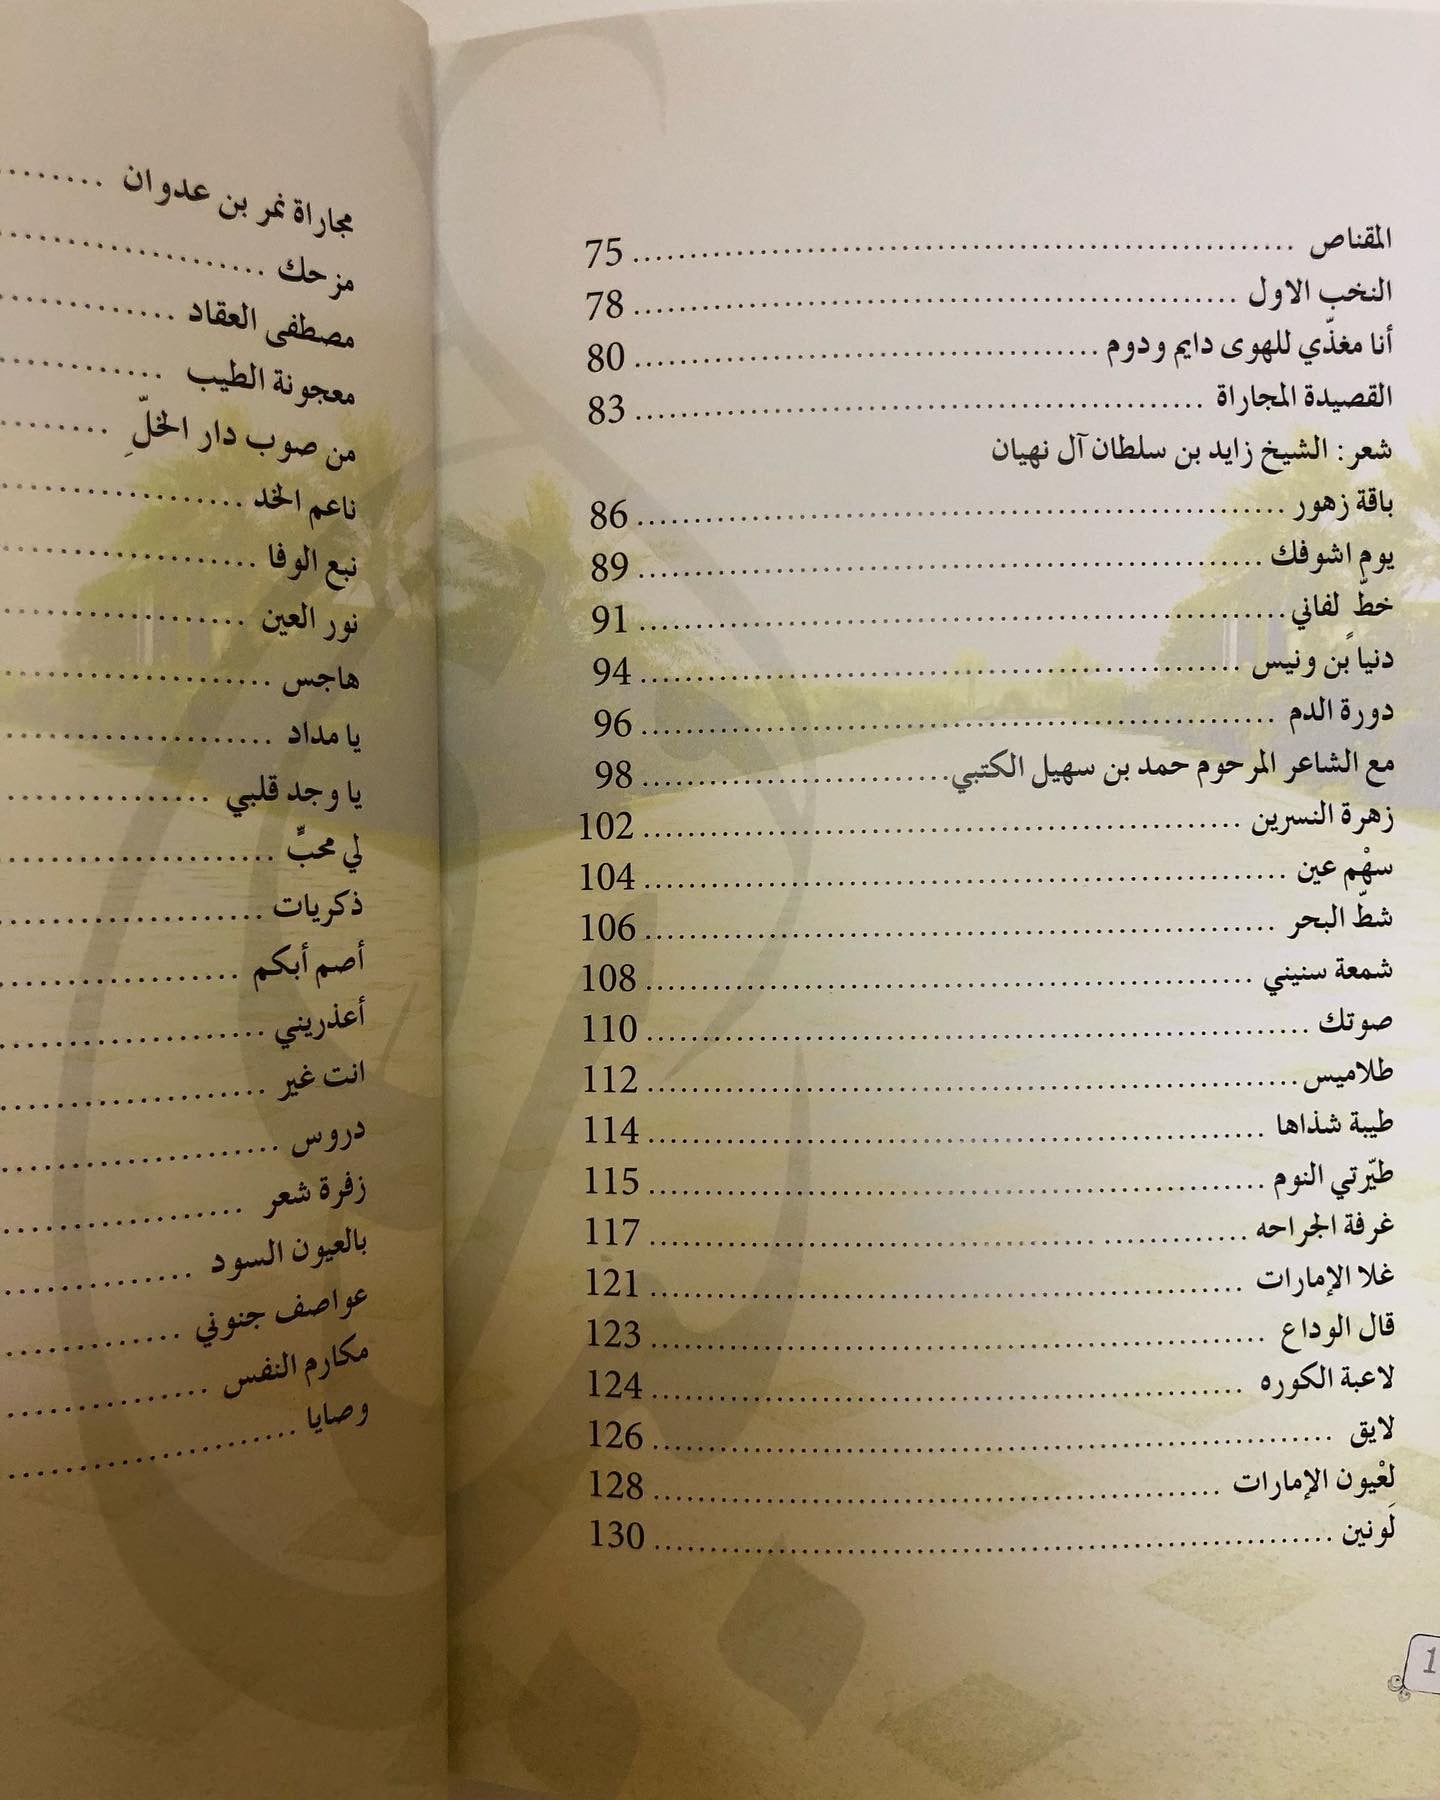 المقناص ........ 75
النخب الاول ........ 78
أنا مغذّي للهوى دايم ودوم ........ 80
القصيدة المجاراة ........ 83
شعر: الشيخ زايد بن سلطان آل نهيان
باقة زهور ........ 86
يوم اشوفك ........ 89
خطٍّ لفاني ........ 91
دنياً بن ونيس ........ 94
دورة الدم ........ 96
مع الشاعر المرحوم حمد بن سهيل الكتبي ........ 98
زهرة النسرين ........ 102
سهْم عين ........ 104
شطّ البحر ........ 106
شمعة سنيني ........ 108
صوتك ........ 110
طلاميس ........ 112
طيبة شذاها ........ 114
طيّرتي النوم ........ 115
غرفة الجراحه ........ 117
غلا الإمارات ........ 121
قال الوداع ........ 123
لاعبة الكوره ........ 124
لايق ........ 126
لعْيون الإمارات ........ 128
لَونين ........ 130
مجاراة نمر بن عدوان ........
مزحك ........
مصطفى العقاد ........
معجونة الطيب ........
من صوب دار الخلِّ ........
ناعم الخد ........
نبع الوفا ........
نور العين ........
هاجس ........
يا مداد ........
يا وجد قلبي ........
لي محبٍّ ........
ذكريات ........
أصم أبكم ........
أعذريني ........
انت غير ........
دروس ........
زفرة شعر ........
بالعيون السود ........
عواصف جنوني ........
مكارم النفس ........
وصايا ........